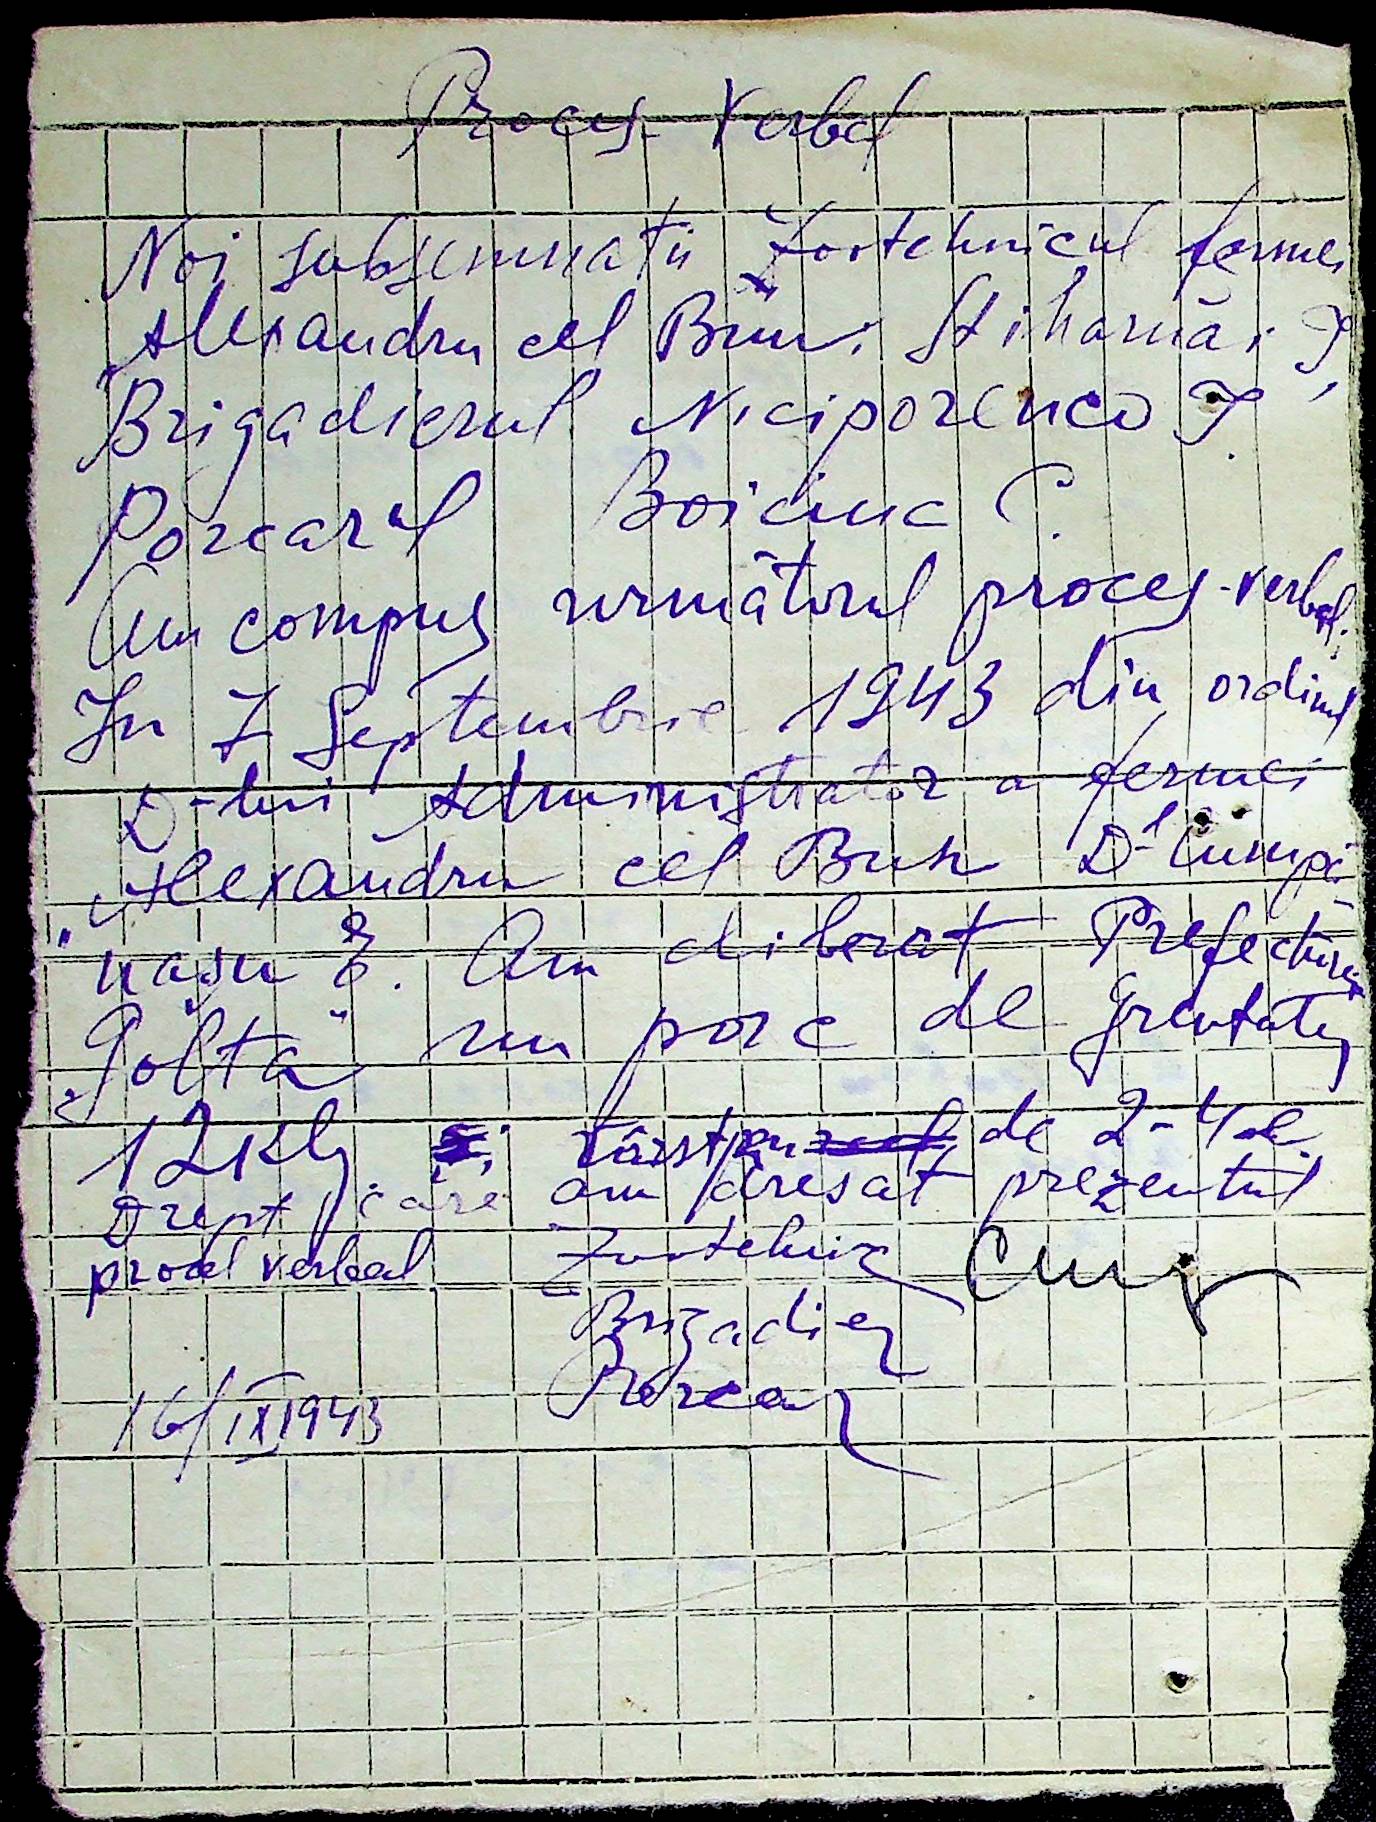 Proces Verbal
Noi subsemnatii Zootehnicul fermei
"Alexandru cel Bun" Stiharnăi I,
Brigadierul Niciporenco I.
Porcarul Boiciuc C.
Am compus următorul proces-verbal;
In 7 Septembrie 1943 din ordinul
D-lui Administrator a fermei
"Alexandru cel Bun D-l Cumpă-
nașu E. Am eliberat Prefecturei
"Golta" un porc de greutatea
12 klg vârsta de 2-4
Drept care am dresat prezentul
proces verbal Zootehnic
Brigadier
Porcar
16/IX1943